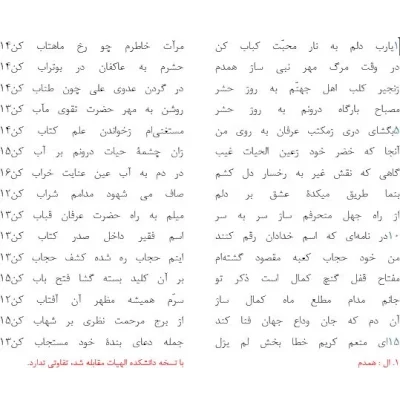 ۱یارب دلم به نار محبّت کباب کن مرآت خاطرم چو رخ ماهتاب کن۱۴
در وقت مرگ مهر نبی ساز همدم حشرم به عاکفان در بوتراب کن۱۴
زنجیر کلب اهل جهنّم به روز حشر در گردن عدوی علی چون طناب کن۱۴
مصباح بارگاه درونم به روز حشر روشن به مهر حضرت تقوی مآب کن۱۳
۵بگشای دری زمکتب عرفان به روی من مستغنی‌ام زخواندن علم کتاب کن۱۴
آنجا که خضر خود زعین الحیات غیب زان چشمهٔ حیات درونم بر آب کن۱۵
گاهی که نقش غیر به رخسار دل کشم در دم به آب عین عنایت خراب کن۱۶
بنما طریق میکدهٔ عشق بر دلم صاف می شهود مدامم شراب کن۱۲
از راه جهل منحرفم ساز سر به سر میلم به راه حضرت عرفان قباب کن۱۳
۱۰در نامه‌ای که اسم خدادان رقم کنند اسم فقیر داخل صدر کتاب کن۱۳
من خود حجاب کعبه مقصود گشته‌ام اینم حجاب ره شده کشف حجاب کن۱۳
مفتاح قفل گنچ کمال است ذکر تو بر آن کلید بسته گشا فتح باب کن۱۵
جانم مدام مطلع ماه کمال ساز سرّم همیشه مظهر آن آفتاب کن۱۲
آن دم که جان وداع جهان فنا کند از برج مرحمت نظری بر شهاب کن۱۵
۱۵ای منعم کریم خطا بخش لم یزل جمله دعای بندهٔ خود مستجاب کن۱۳
۱. ال : همدم با نسخه دانشکده الهیات مقابله شد، تفاوتی ندارد.